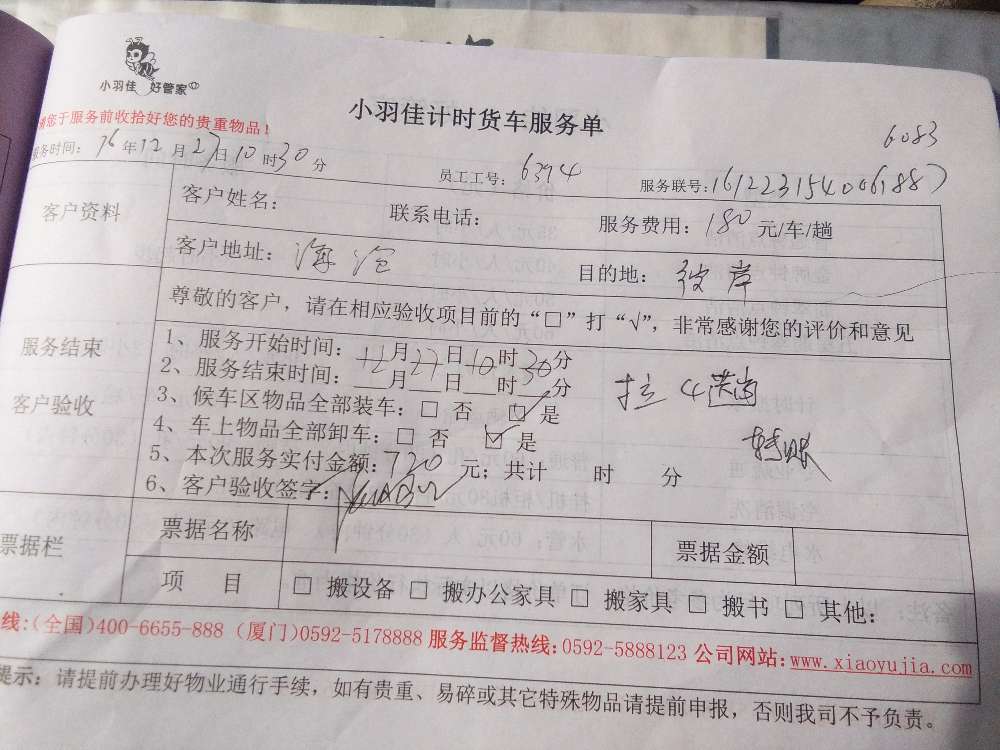 小羽佳 好管家
小羽佳计时货车服务单
6083
请您于服务前收拾好您的贵重物品！
服务时间：16年12月27日10时30分
员工工号：6394
服务联号：1612231540061887
客户资料
客户姓名：
联系电话：
服务费用：180元/车/趟
客户地址：海沧
目的地：彼岸
服务结束
客户验收
尊敬的客户，请在相应验收项目前的“□”打“√”，非常感谢您的评价和意见
1、服务开始时间：12月27日10时30分
2、服务结束时间：__月__日__时__分
3、候车区物品全部装车：□ 否 ☑ 是
拉4趟
4、车上物品全部卸车：□ 否 ☑ 是
转账
5、本次服务实付金额：720元；共计 时 分
6、客户验收签字：
票据栏
票据名称
票据金额
项 目
□ 搬设备 □ 搬办公家具 □ 搬家具 □ 搬书 □ 其他：
线:(全国)400-6655-888 (厦门)0592-5178888 服务监督热线:0592-5888123 公司网站:www.xiaoyujia.com
提示：请提前办理好物业通行手续，如有贵重、易碎或其它特殊物品请提前申报，否则我司不予负责。